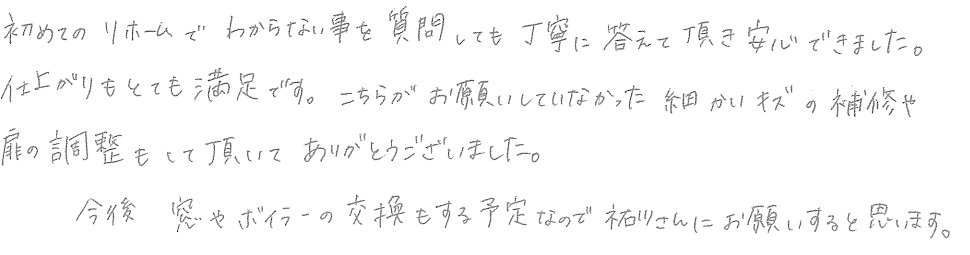 初めてのリホームでわからない事を質問しても丁寧に答えて頂き安心できました。
仕上がりもとても満足です。こちらがお願いしていなかった細かいキズの補修や
扉の調整もして頂いてありがとうございました。
今後 窓やボイラーの交換もする予定なので祐川さんにお願いすると思います。